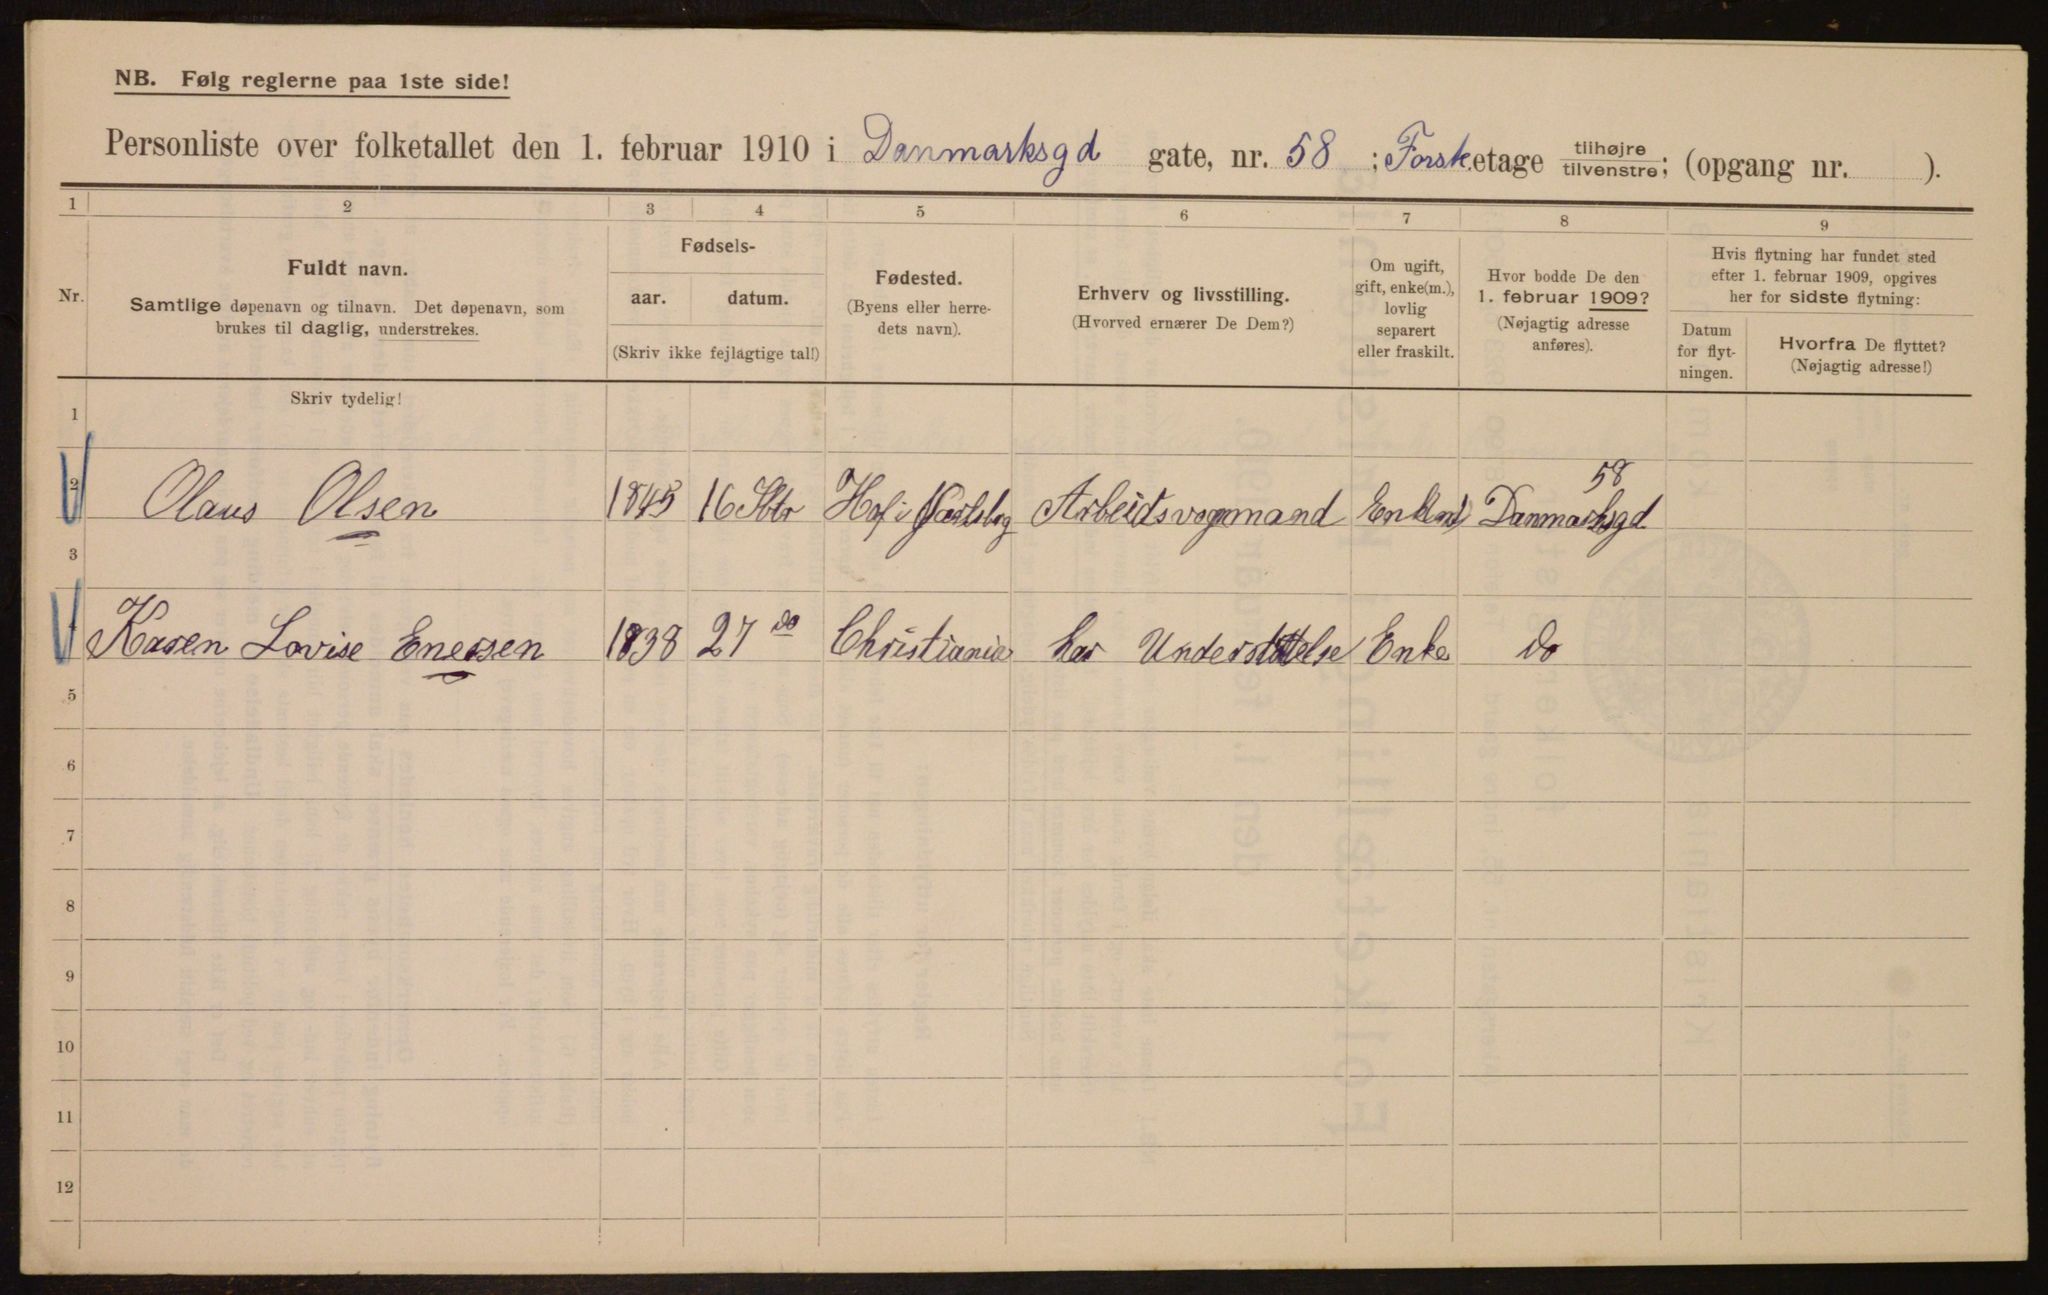 NB. Følg reglerne paa 1ste side!
Personliste over folketallet den 1. februar 1910 i Danmarksgd gate, nr. 58 ; Forsk.etage tilhøjre tilvenstre; (opgang nr. ).
1 2 3 4 5 6 7 8 9
Nr.
Fuldt navn.
Samtlige døpenavn og tilnavn. Det døpenavn, som
brukes til daglig, understrekes.
Fødsels-
aar. datum.
(Skriv ikke fejlagtige tal!)
Fødested.
(Byens eller herre-
dets navn).
Erhverv og livsstilling.
(Hvorved ernærer De Dem?)
Om ugift,
gift, enke(m.),
lovlig
separert
eller fraskilt.
Hvor bodde De den
1. februar 1909?
(Nøjagtig adresse
anføres).
Hvis flytning har fundet sted
efter 1. februar 1909, opgives
her for sidste flytning:
Datum
for flyt-
ningen.
Hvorfra De flyttet?
(Nøjagtig adresse!)
Skriv tydelig!
1
58
2 Olaus Olsen 1845 16 Hof i Jarlsbg Arbeidsvognmand Danmarksgd
3
Karen Lovise Enersen 1838 27 do Christiania har Understøttelse Enke do
5
6
7
8
9
10
11
12